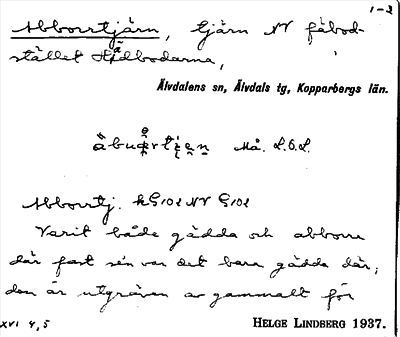 1-2
Abborrtjärn, tjärn NV fäbod-
stället Hådbodarna,
Älvdalens sn, Älvdals tg, Kopparbergs län.
Må. L.Ö.L.
Abborrtj. kG102 NV G102
Varit både gädda och abborre
där fast sén var det bara gädda där,
den är utgräven av gammalt för
XVI 4,5
HELGE LINDBERG 1937.